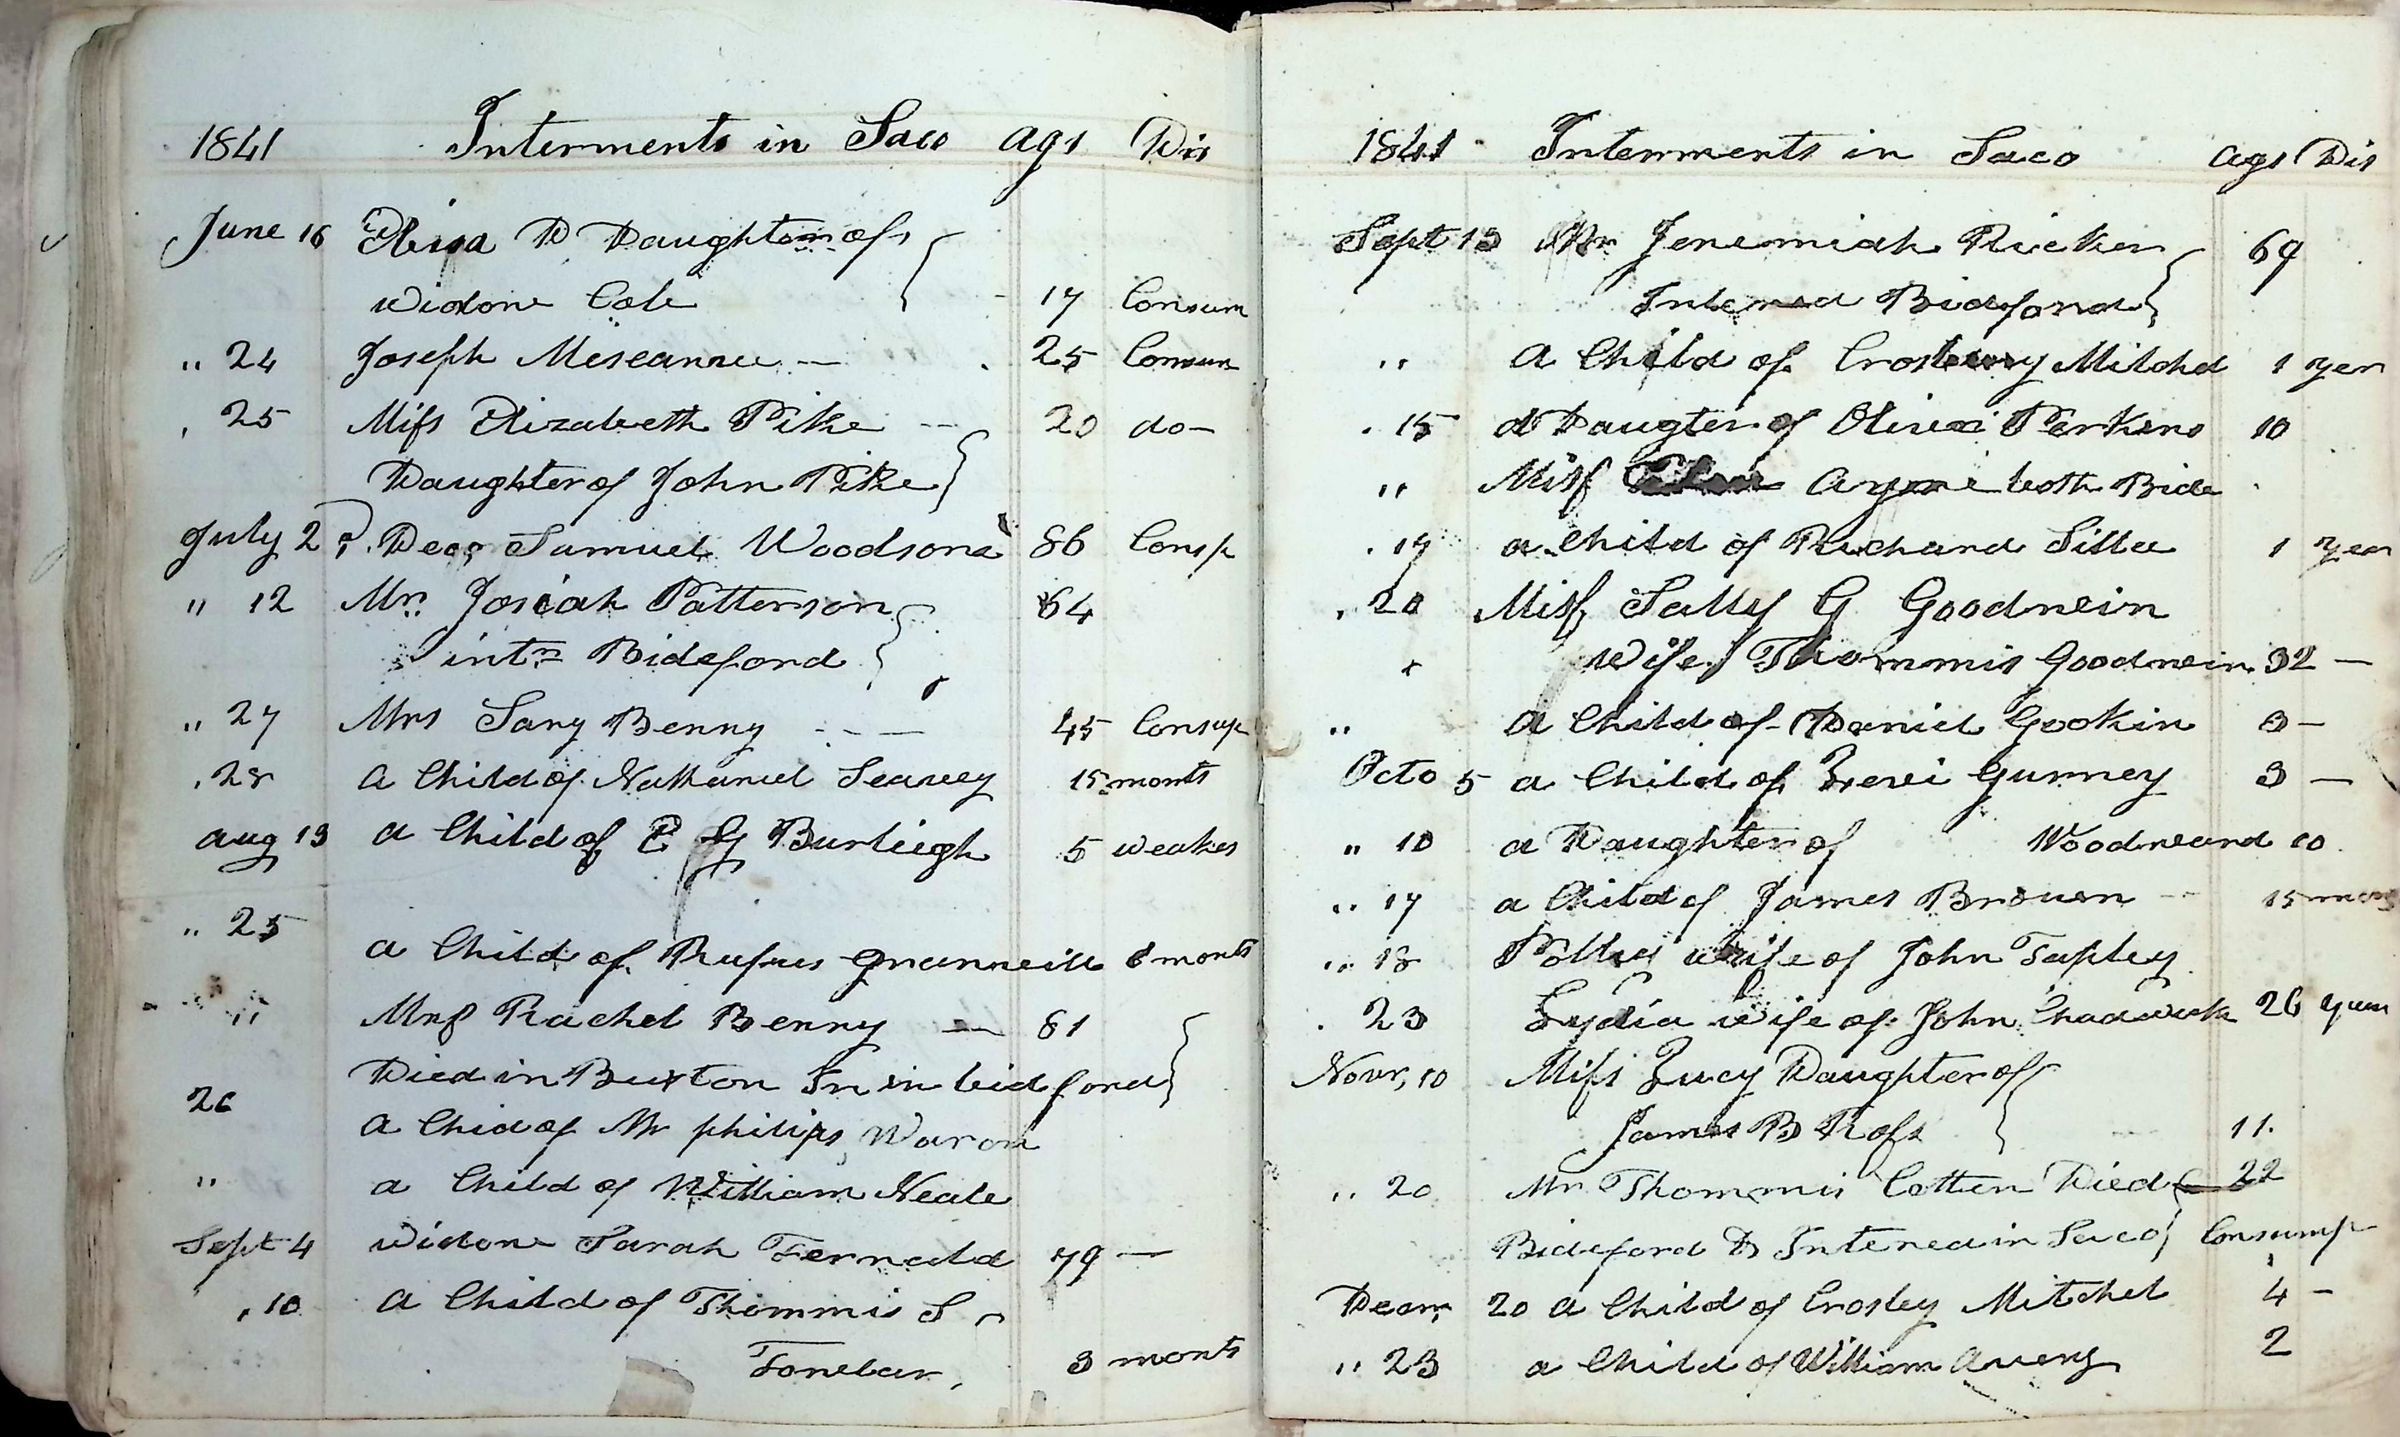 1841 Interments in Saco ags Dis
June 16 Elisa D Daughter of
widow Cole 17 Consum
,, 24 Joseph 25 Consum
, 25 Miss Elizabeth Pike 20 do
Daughter of John Pike
July 2 Samuel Woodsone 86 Consp
" 12 Mr. Josiah Patterson 64
intr Bideford
,, 27 Mrs Sary Benny 45 Consup
, 28 a Child of Nathaniel Seavey 15 monts
aug 13 a Child of E G Burleigh 5 weakes
,, 25
a Child of Rufus 8 monts
,, Mrs Rachel Benny 81
Died in Buxton In in bidford
26
a Chid of Mr philips Waron
,, a Child of William Neale
Sept 4 widow Sarah Fernald 79
, 10 a Child of Thommis S
3 monts
1841 Interments in Saco ags Dis
Sept 13 Mr Jeremiah Ricker 69
Intered Bideford
,, a Child of Mitchel 1 yer
. 15 a Daugter of Perkins 10
,, Miss both Bide
. 17 a Child of Richard 1 year
, 20 Miss Sally G Goodwin
wife Thommis Goodwin 32
,, a Child of Daniel Gookin 3
Octo 5 a Child of Levi Gurney 3
,, 10 a Daughter of Woodward 10
,, 17 a Child of James Brown 15
,, 18 Polly wife of John Tapley
. 23 Lydia wife of John Chadwick 26
Novr, 10 Miss Lucy Daughter of
James B Ross 11.
,, 20 Mr Thommis Cotten Died 22
Bideford & Intered in Saco Consump
Decm, 20 a Child of Crosley Mitchel 4
,, 23 a Child of William Avery 2